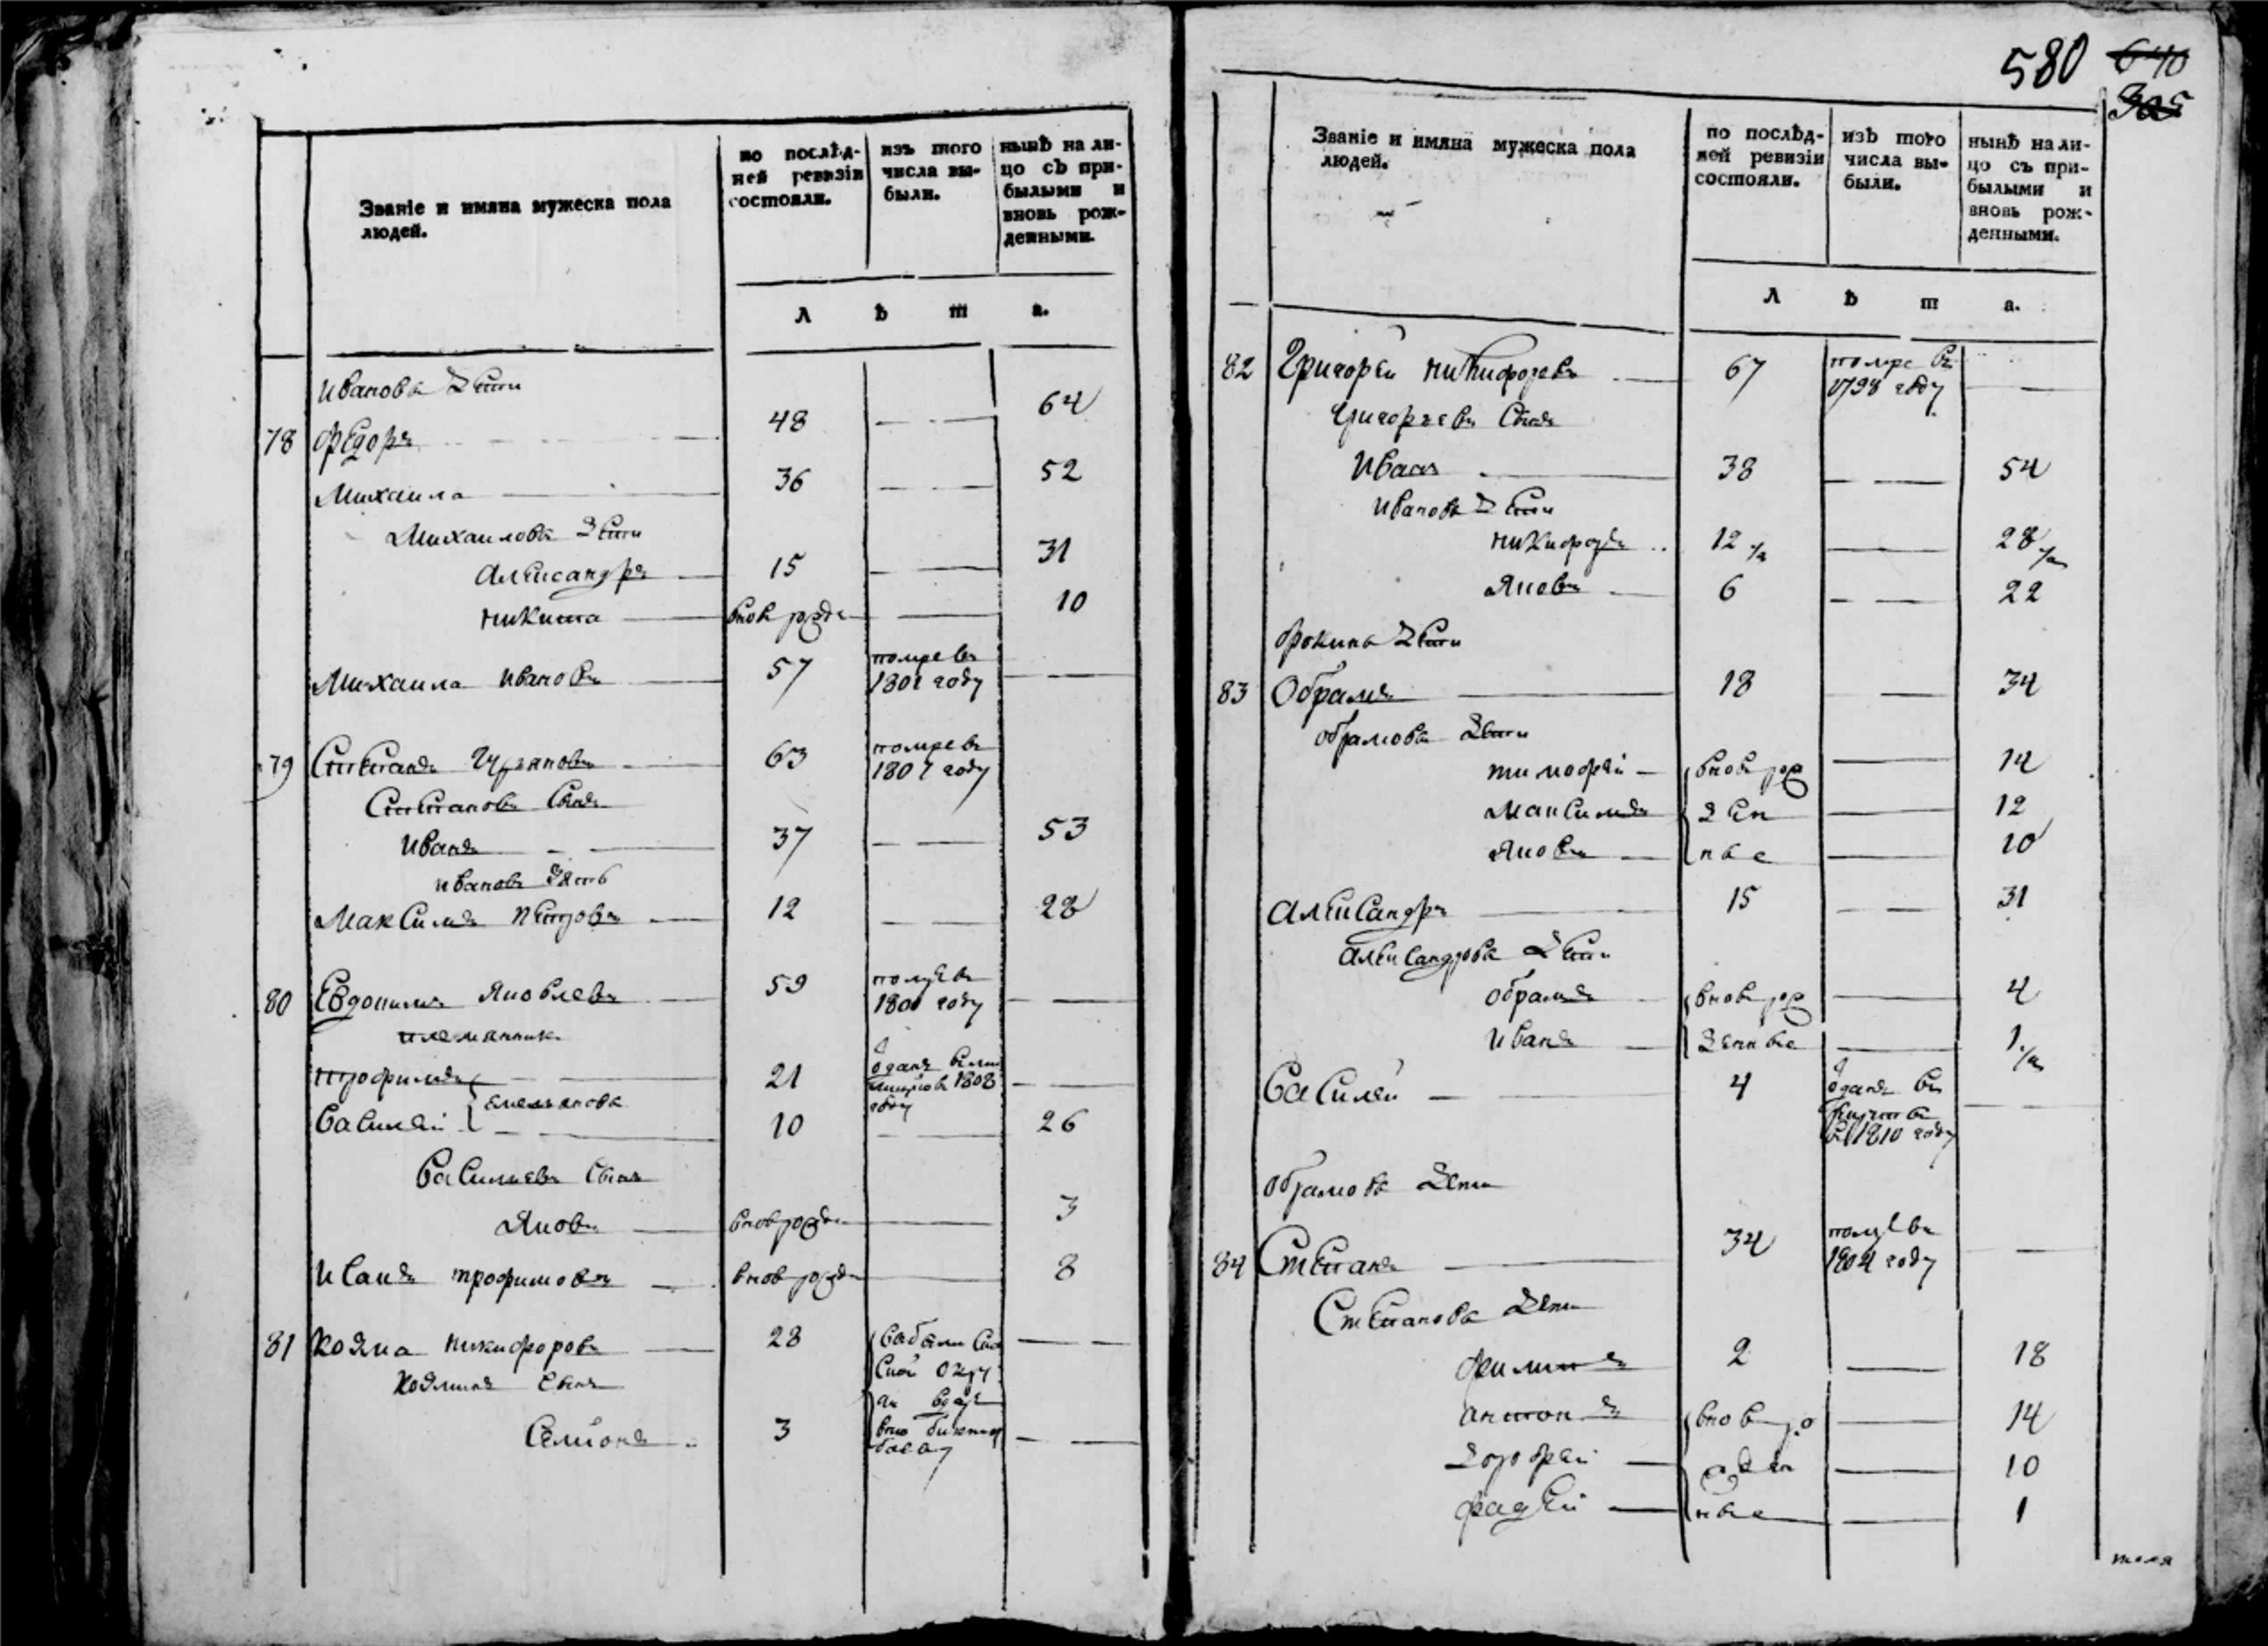 Званіе и имяна мужеска пола
людей.
по послѣд-
ней ревизіи
состояли.
изъ того
числа вы-
были.
нынѣ на ли-
цо съ при-
былыми и
вновь рож-
денными.
л ѣ т а.
Иванова дети
78 Федоръ 48 64
Михаила 36 52
Михаилова дети
Александръ 15 31
Никита вновь рожде 10
Михаила Ивановъ 57 помре въ
1801 году
79 Степанъ 63 помре въ
1807 году
Степановъ сынъ
Иванъ 37 53
Ивановъ зять
Максимъ Петровъ 12 28
80 Евдокимъ Яковлевъ 59 помре въ
1801 году
племянник
Трофимъ 21 оданъ
1808
году
Емельянова
Василей 10 26
Васильевъ сынъ
Яковъ вновь рожде 3
Иванъ Трофимовъ вновь рожде 8
81 Козма Никифоровъ 28
Козминъ сынъ
Семионъ 3
580
640
305
Званіе и имяна мужеска пола
людей.
по послѣд-
ней ревизіи
состояли.
изъ того
числа вы-
были.
нынѣ на ли-
цо съ при-
былыми и
вновь рож-
денными.
л ѣ т а.
82 Григорей Никифоровъ 67 помре въ
1798 году
Григорьевъ сынъ
Иванъ 38 54
Иванова дети
Никифоръ 12 1/2 28 1/2
Яковъ 6 22
Фокины дети
83 Обрамъ 18 34
Обрамова дети
Тимофей вновь рож 14
Максимъ ден 12
Яковъ ные 10
Александръ 15 31
Александрова дети
Обрамъ вновь рож 4
Иванъ денные 1 1/2
Василей 4 одан въ
рекруты
въ 1810 году
Обрамова дети
84 Степанъ 34 помре въ
1804 году
Степанова дети
Филипъ 2 18
Антонъ вновь ро 14
Дорофей жден 10
Фадей ные 1